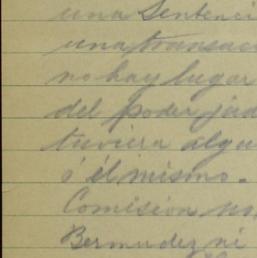 una Sentenci
una transac
no hay lugar
del poder jud
tuviera algu
ó él mismo.
Comision no
Bermudez ni